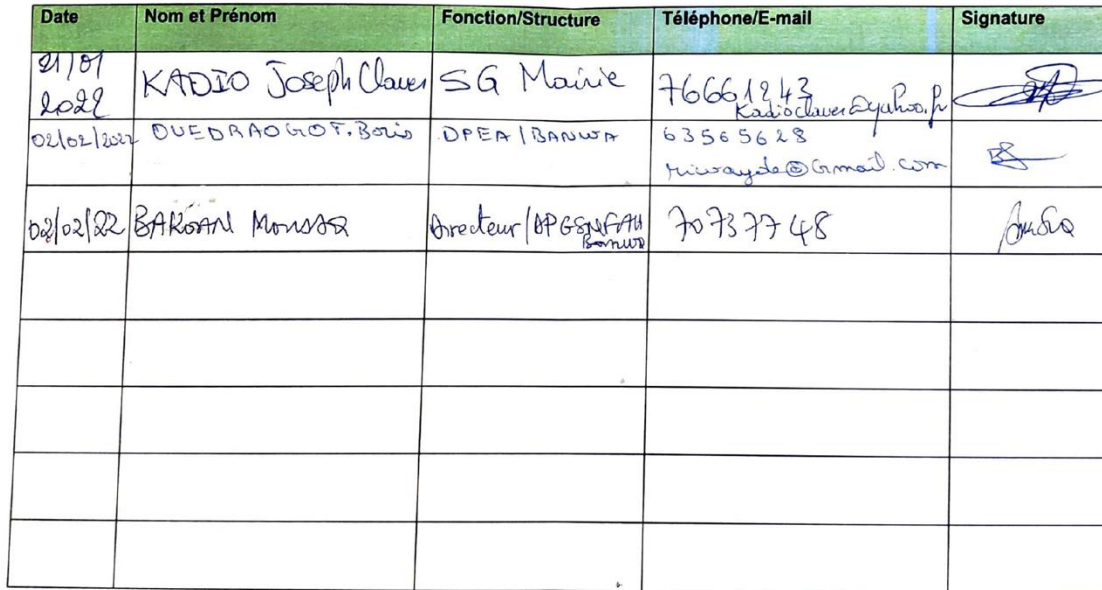 Date Nom et Prénom Fonction/Structure Téléphone/E-mail Signature
21/01
2022 KADIO Joseph Claver SG Mairie 76661243
Kadioclaver@yahoo.fr
02/02/2022 OUEDRAOGO F. Boris DPEA/BANWA 63565628
@Gmail.com
02/02/22 BAKOAN Directeur/ 70737748
Banwa